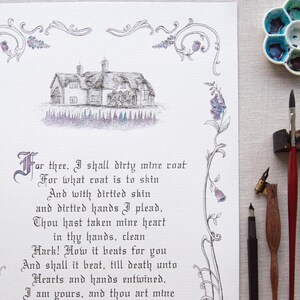 For thee, I shall dirty mine coat
For what coat is to skin
And with dirtied skin
and dirtied hands I plead,
Thou hast taken mine heart
in thy hands, clean
Hark! How it beats for you
And shall it beat, till death unto
Hearts and hands entwined,
I am yours, and thou art mine